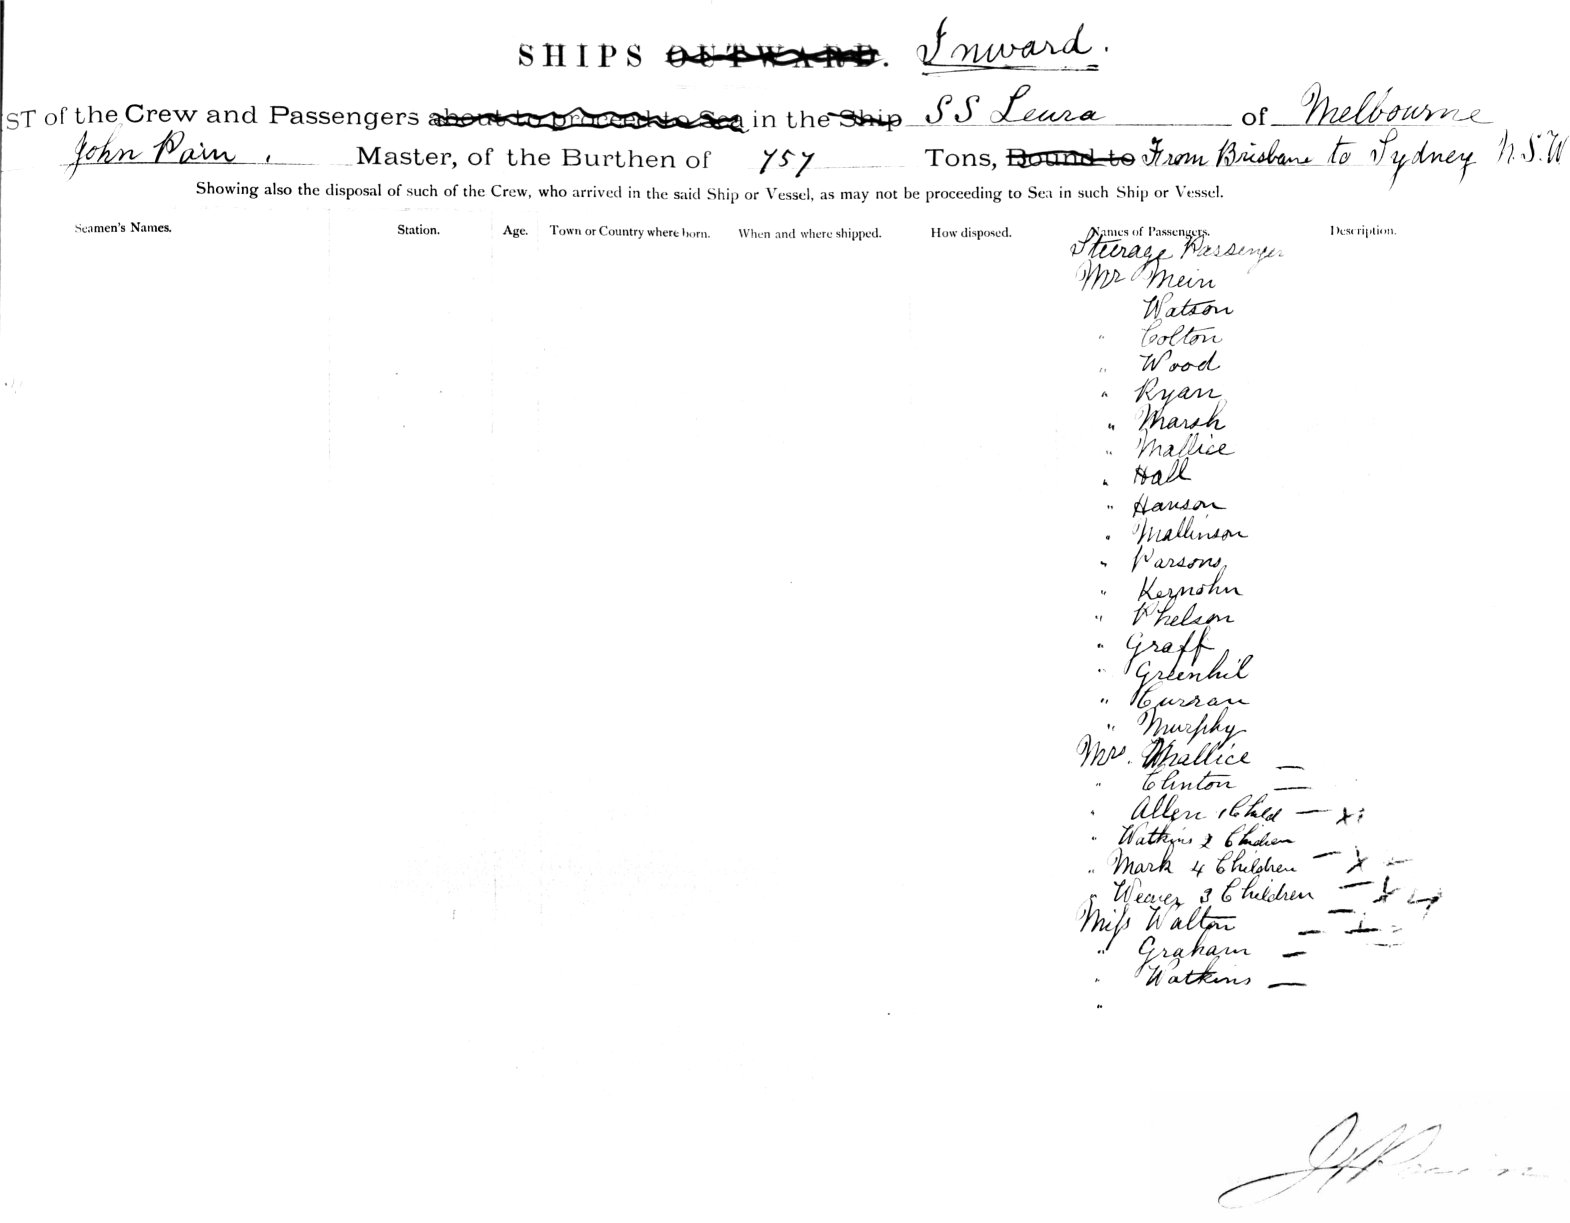 SHIPS OUTWARD. Inward.
ST of the Crew and Passengers about to proceed to Sea in the Ship SS Leura of Melbourne
John Pain, Master, of the Burthen of 757 Tons, Bound to From Brisbane to Sydney N.S.W
Showing also the disposal of such of the Crew, who arrived in the said Ship or Vessel, as may not be proceeding to Sea in such Ship or Vessel.
Seamen's Names. Station. Age. Town or Country where born. When and where shipped. How disposed. Names of Passengers. Description.
Steerage Passenger
Mr Mein
Watson
" Colton
" Wood
" Ryan
" Marsh
" Mallice
" Hall
" Hanson
" Mallinson
" Parsons
" Kernohn
" Phelson
" Graff
" Greenhil
" Curran
" Murphy
Mrs. Mallice —
" Clinton —
" Allen 1 Child —
" Watkins 2 Children
" Mark 4 Children —
" Weaver 3 Children —
Miss Walton —
" Graham —
" Watkins —
"